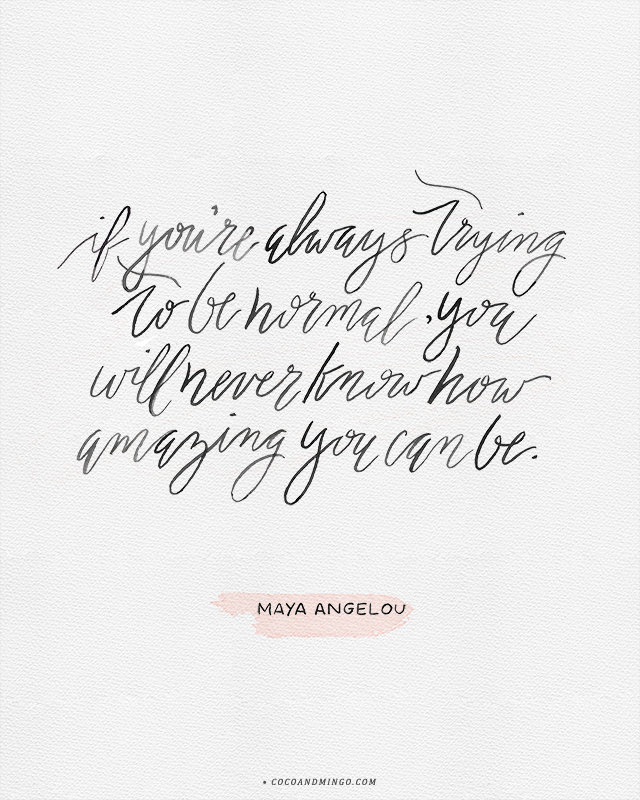 if you're always trying
to be normal, you
will never know how
amazing you can be.
MAYA ANGELOU
• COCOANDMINGO.COM